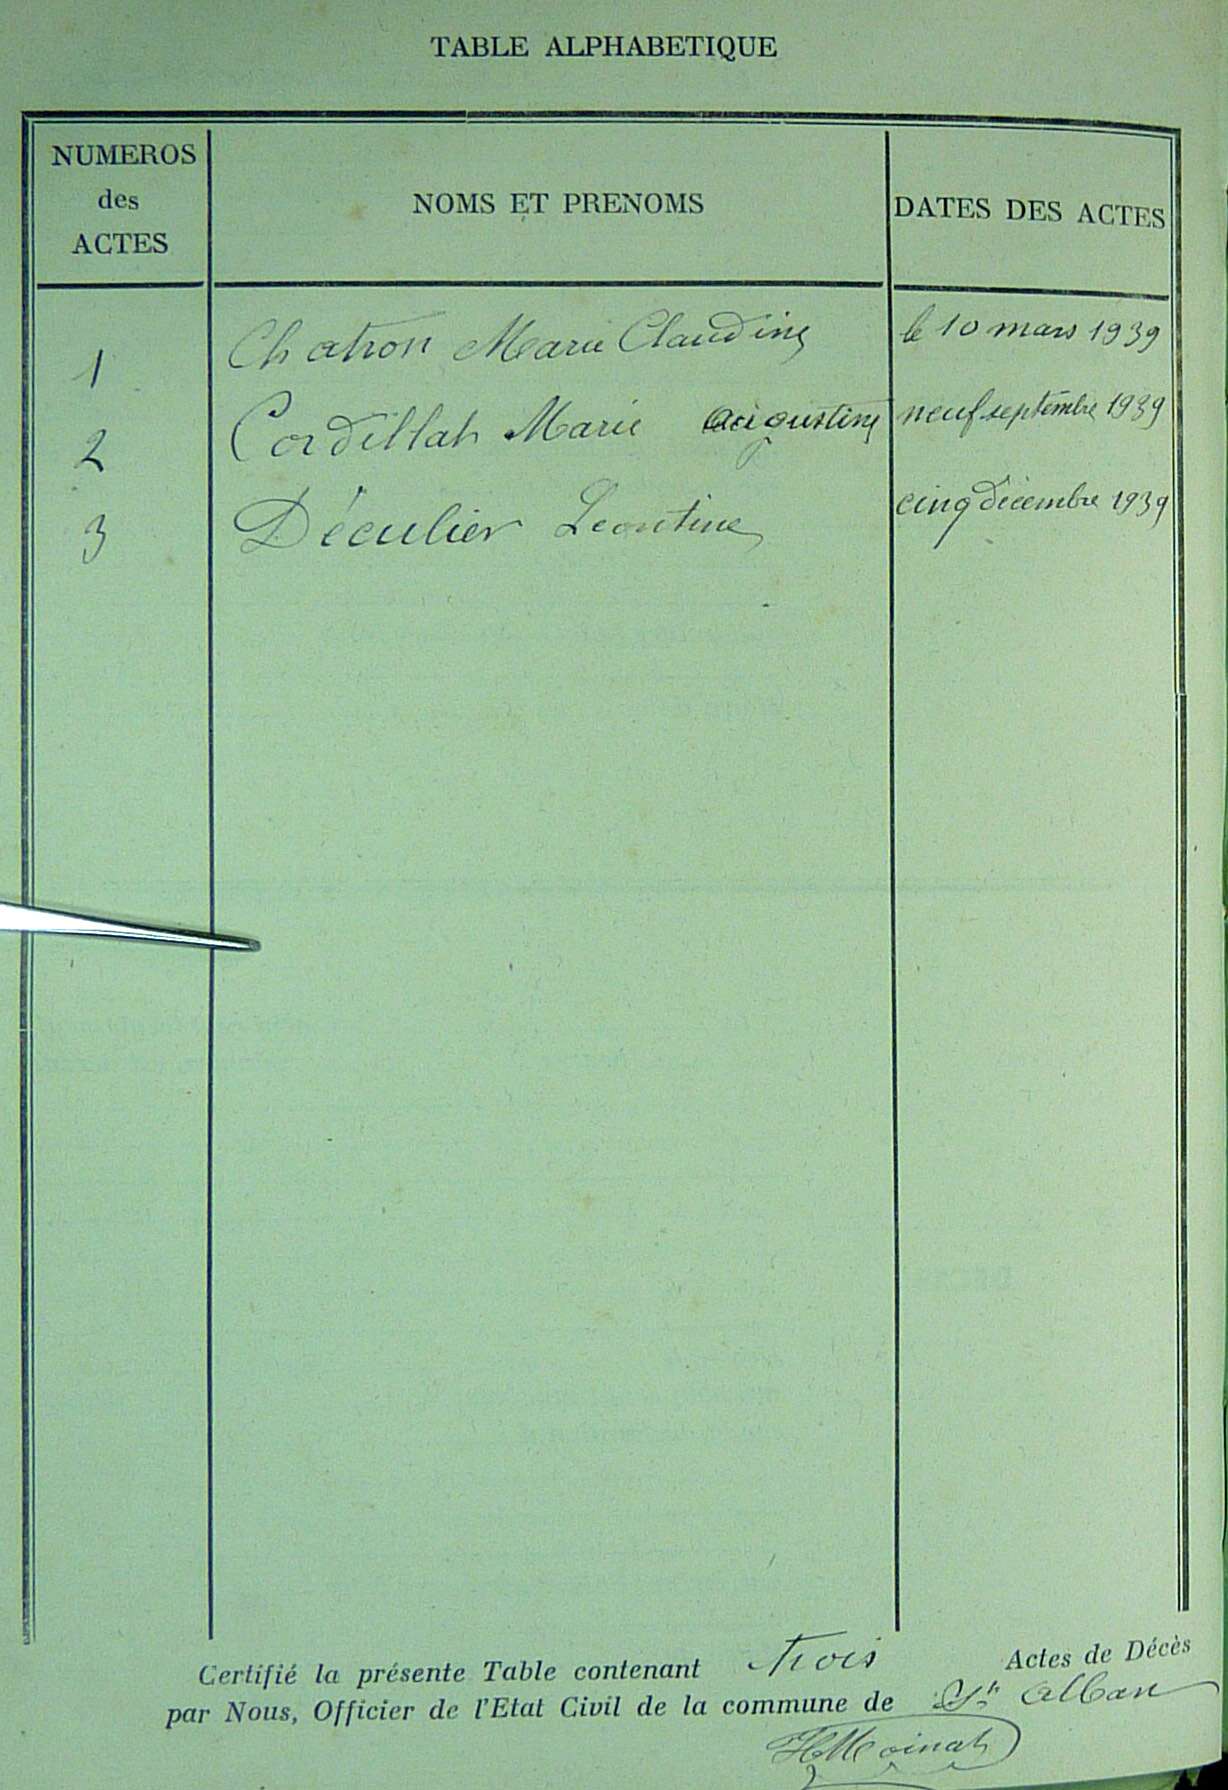 TABLE ALPHABETIQUE
NUMEROS
des
ACTES
NOMS ET PRENOMS
DATES DES ACTES
1 Chatron Marie Claudine le 10 mars 1939
2 Cordillat Marie augustine neuf septembre 1939
3 Déculier Léontine cinq décembre 1939
Certifié la présente Table contenant trois Actes de Décès
par Nous, Officier de l'Etat Civil de la commune de St alban